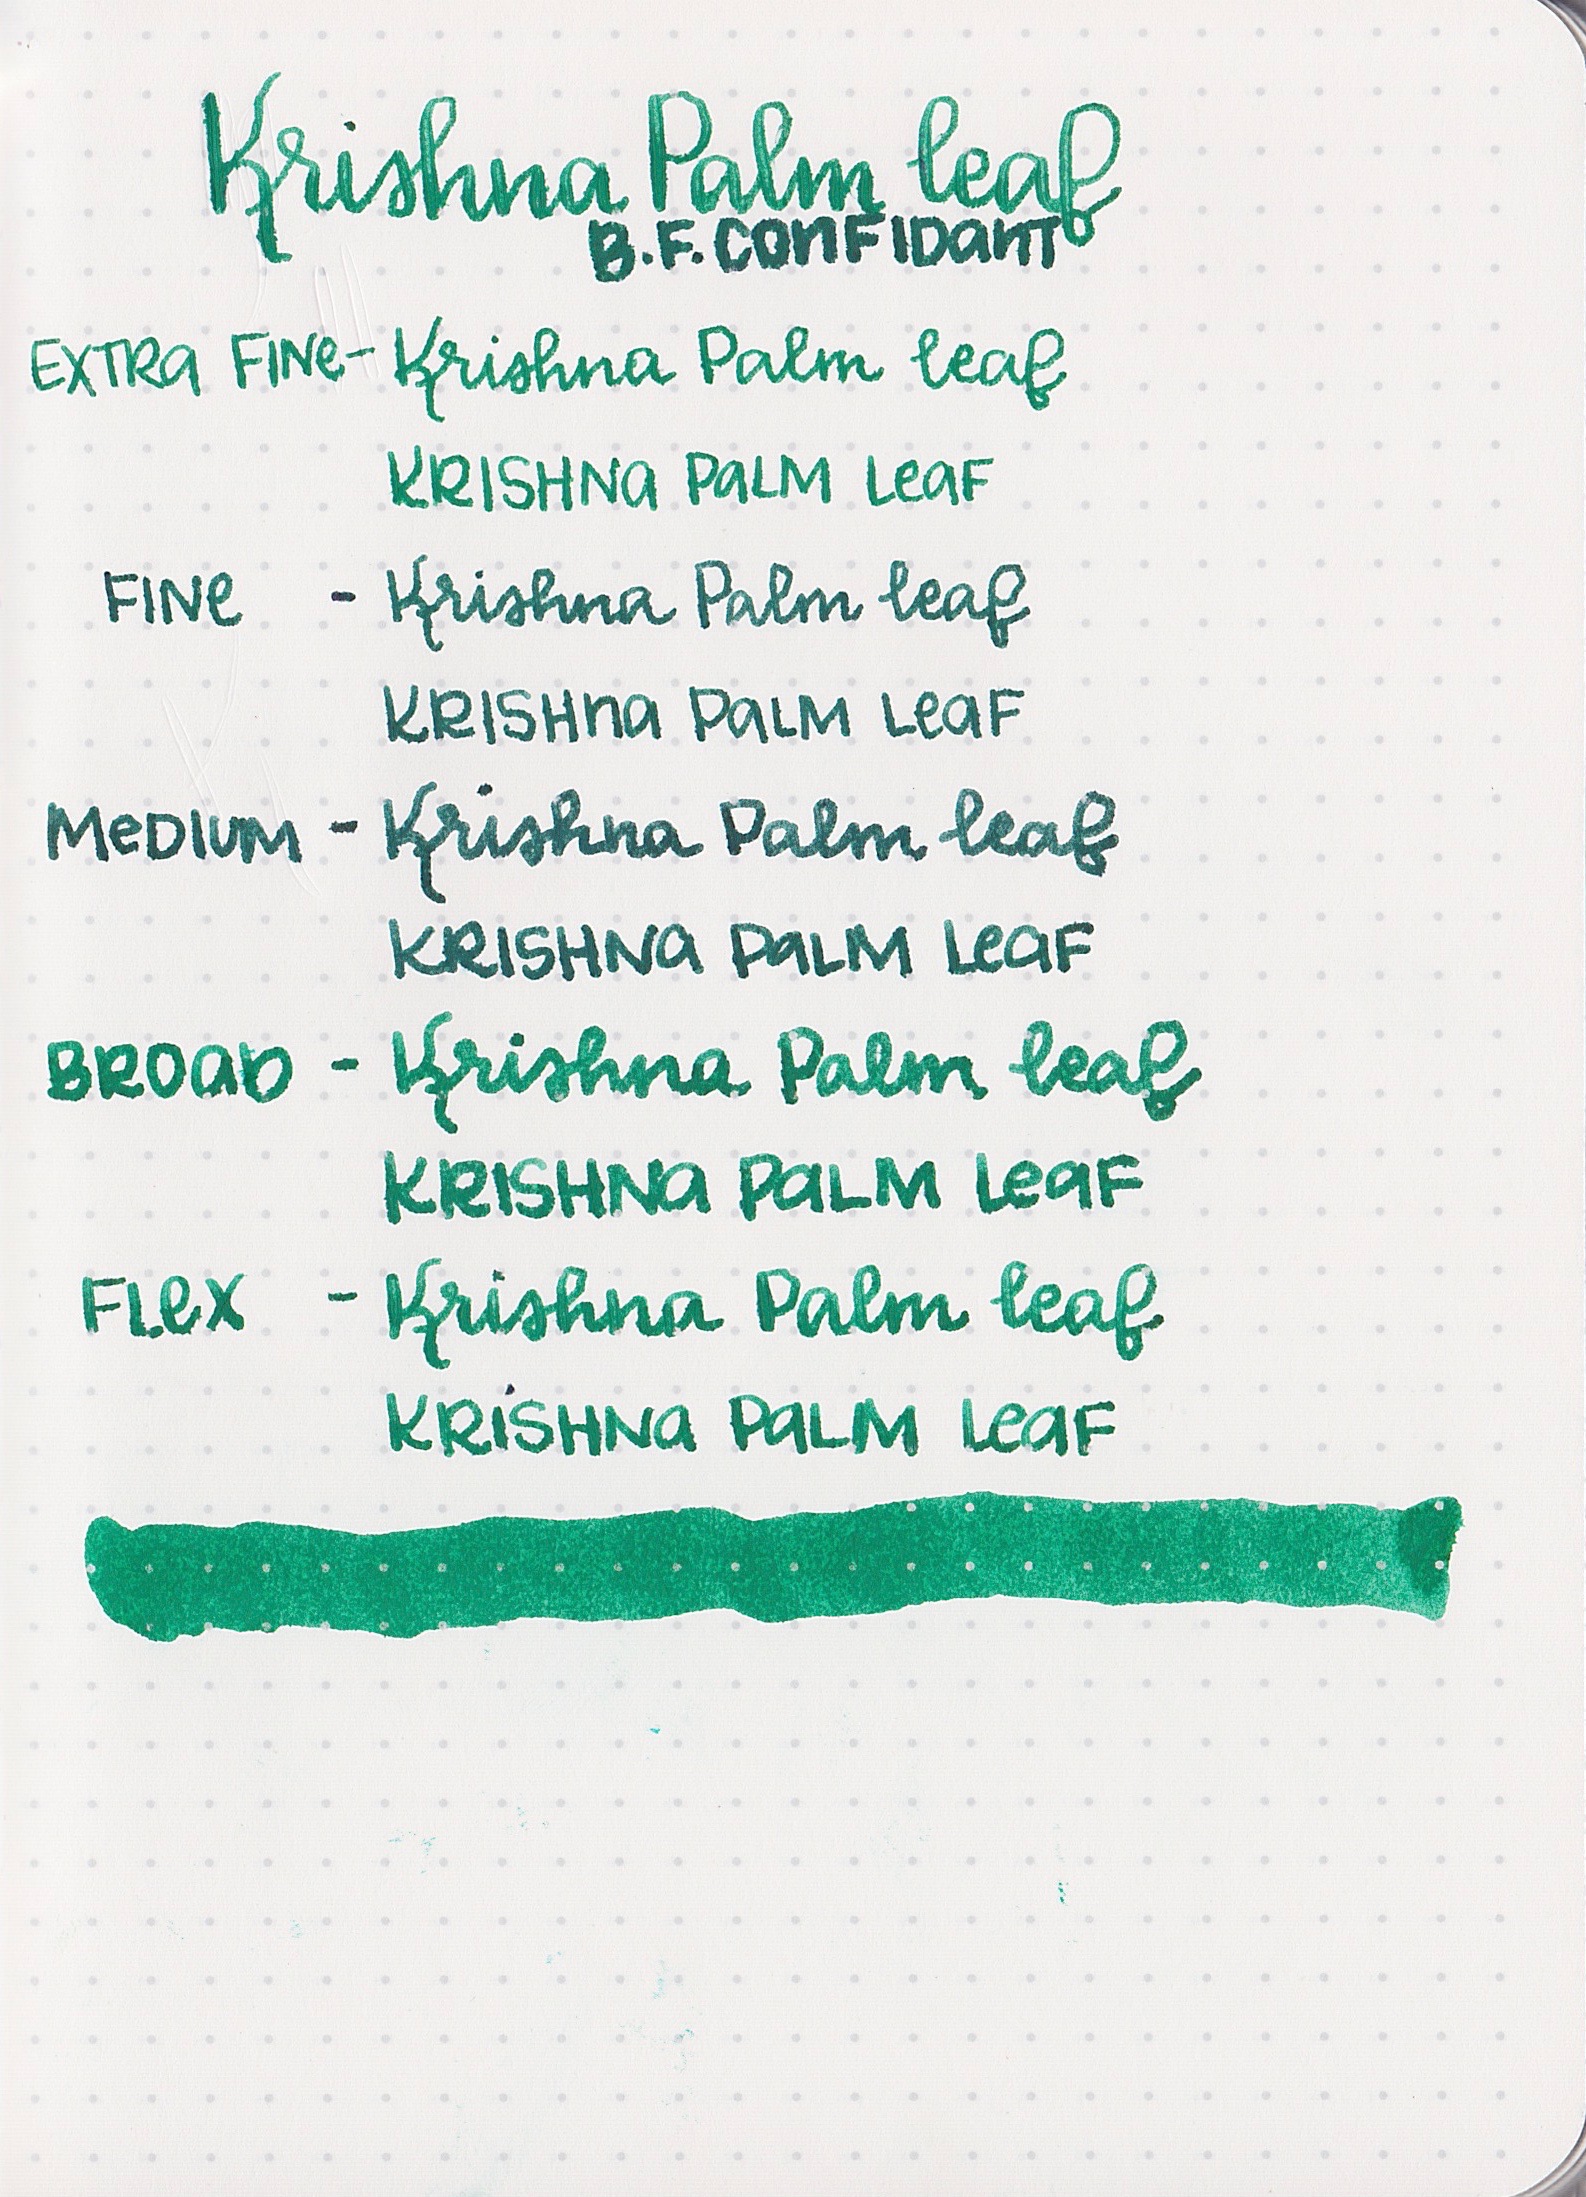 Krishna Palm leaf
B.F. CONFIDANT
EXTRA FINe - Krishna Palm leaf
KRISHNa PaLM LeaF
FINe - Krishna Palm leaf
KRISHna PaLM LeaF
MeDIUM - Krishna Palm leaf
KRISHNa PaLM LeaF
BROaD - Krishna Palm leaf
KRISHNa PaLM LeaF
FLex - Krishna Palm leaf
KRiSHNa PaLM LeaF